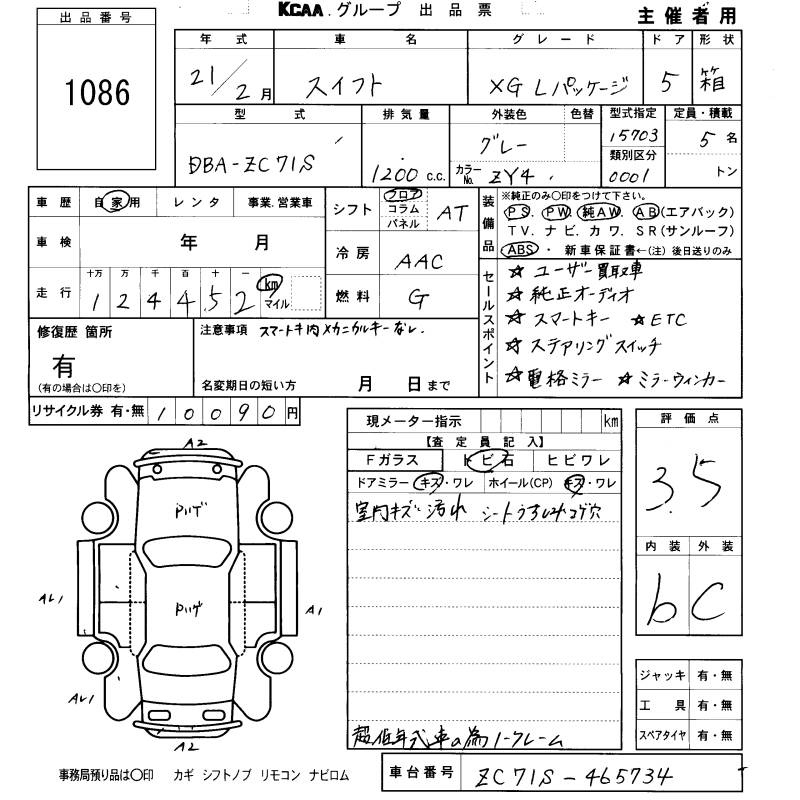 KCAA.グループ 出品票
主催者用
出品番号
1086
年式 車名 グレード ドア 形状
21/2月 スイフト XG Lパッケージ 5 箱
型式 排気量 外装色 色替 型式指定 定員・積載
DBA-ZC71S 1200 c.c. グレー 15703 5名
カラーNo. ZY4 類別区分 0001 トン
車歴 自家用 レンタ 事業.営業車
シフト フロア コラム パネル AT
車検 年 月
冷房 AAC
走行 十万 万 千 百 十 一
124452 km マイル
燃料 G
装備品 ※純正のみ〇印をつけて下さい。
PS. PW. 純AW. AB(エアバック)
TV. ナビ. カワ. SR(サンルーフ)
ABS・新車保証書←(注)後日送りのみ
セールスポイント
☆ ユーザー買取車
☆ 純正オーディオ
☆ スマートキー ☆ETC
☆ ステアリングスイッチ
☆ 電格ミラー ☆ミラーウィンカー
修復歴 箇所
有
(有の場合は〇印を)
注意事項 スマートキ内メカニカルキーなし.
名変期日の短い方 月 日まで
リサイクル券 有・無 10090円
現メーター指示 km
【査定員記入】
Fガラス トビ石 ヒビワレ
ドアミラー キズ・ワレ ホイール(CP) キズ・ワレ
室内キズ 汚れ シートうすじみコゲ穴
超低年式車の為ノークレーム
評価点
3.5
内装 外装
b C
A2
Pハゲ
Pハゲ
AL1
A1
AL1
A2
ジャッキ 有・無
工具 有・無
スペアタイヤ 有・無
事務局預り品は〇印 カギ シフトノブ リモコン ナビロム
車台番号 ZC71S-465734